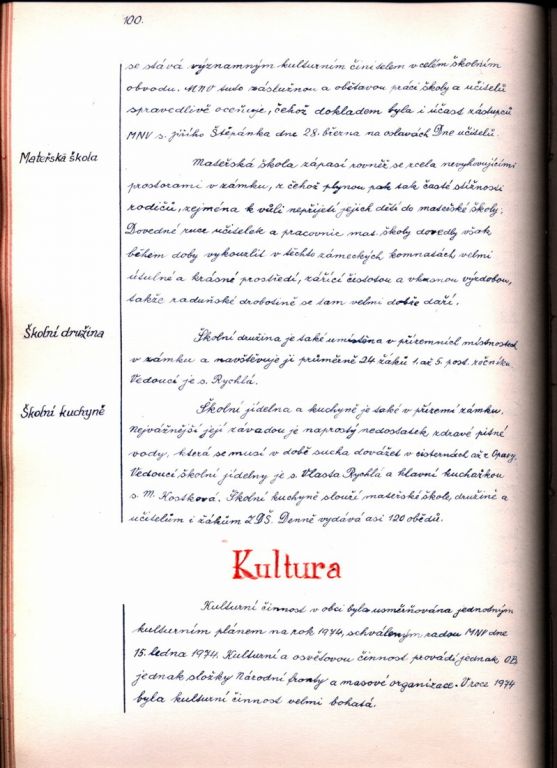 100.
se stává významným kulturním činitelem v celém školním
obvodu. MNV tuto záslužnou a obětavou práci školy a učitelů
spravedlivě oceňuje, čehož dokladem byla i účast zástupců
MNV s. Jiřího Štěpánka dne 28. března na oslavách Dne učitelů.
Mateřská škola
Mateřská škola zápasí rovněž se zcela nevyhovujícími
prostorami v zámku, z čehož plynou pak tak časté stížnosti
rodičů, zejména k vůli nepřijetí jejich dětí do mateřské školy.
Dovedné ruce učitelek a pracovnic mat. školy dovedly však
během doby vykouzlit v těchto zámeckých komnatách velmi
útulné a krásné prostředí, zářící čistotou a vkusnou výzdobou,
takže raduňské drobotině se tam velmi dobře daří.
Školní družina
Školní družina je také umístěna v přízemních místnostech
v zámku a navštěvuje ji průměrně 24 žáků 1. až 5. post. ročníku.
Vedoucí je s. Rychlá.
Školní kuchyně
Školní jídelna a kuchyně je také v přízemí zámku.
Nejvážnější její závadou je naprostý nedostatek zdravé pitné
vody, která se musí v době sucha dovážet v cisternách až z Opavy.
Vedoucí školní jídelny je s. Vlasta Rychlá a hlavní kuchařkou
s. M. Kostková. Školní kuchyně slouží mateřské škole, družině a
učitelům i žákům ZDŠ. Denně vydává asi 120 obědů.
Kultura
Kulturní činnost v obci byla usměrňována jednotným
kulturním plánem na rok 1974, schváleným radou MNV dne
15. ledna 1974. Kulturní a osvětovou činnost provádí jednak OB
jednak složky Národní fronty a masové organizace. V roce 1974
byla kulturní činnost velmi bohatá.